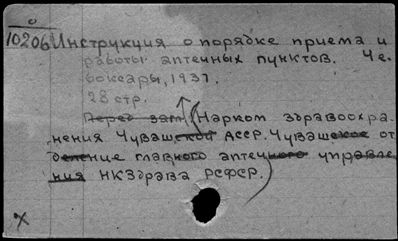 10206 Инструкция о порядке приема и
работы аптечных пунктов. Че-
боксары, 1937.
28 стр.
Перед заг. (Нарком здравоохра-
нения Чувашской АССР. Чувашское от
деление главного аптечного управле-
ния НКЗдрава РСФСР.)
х